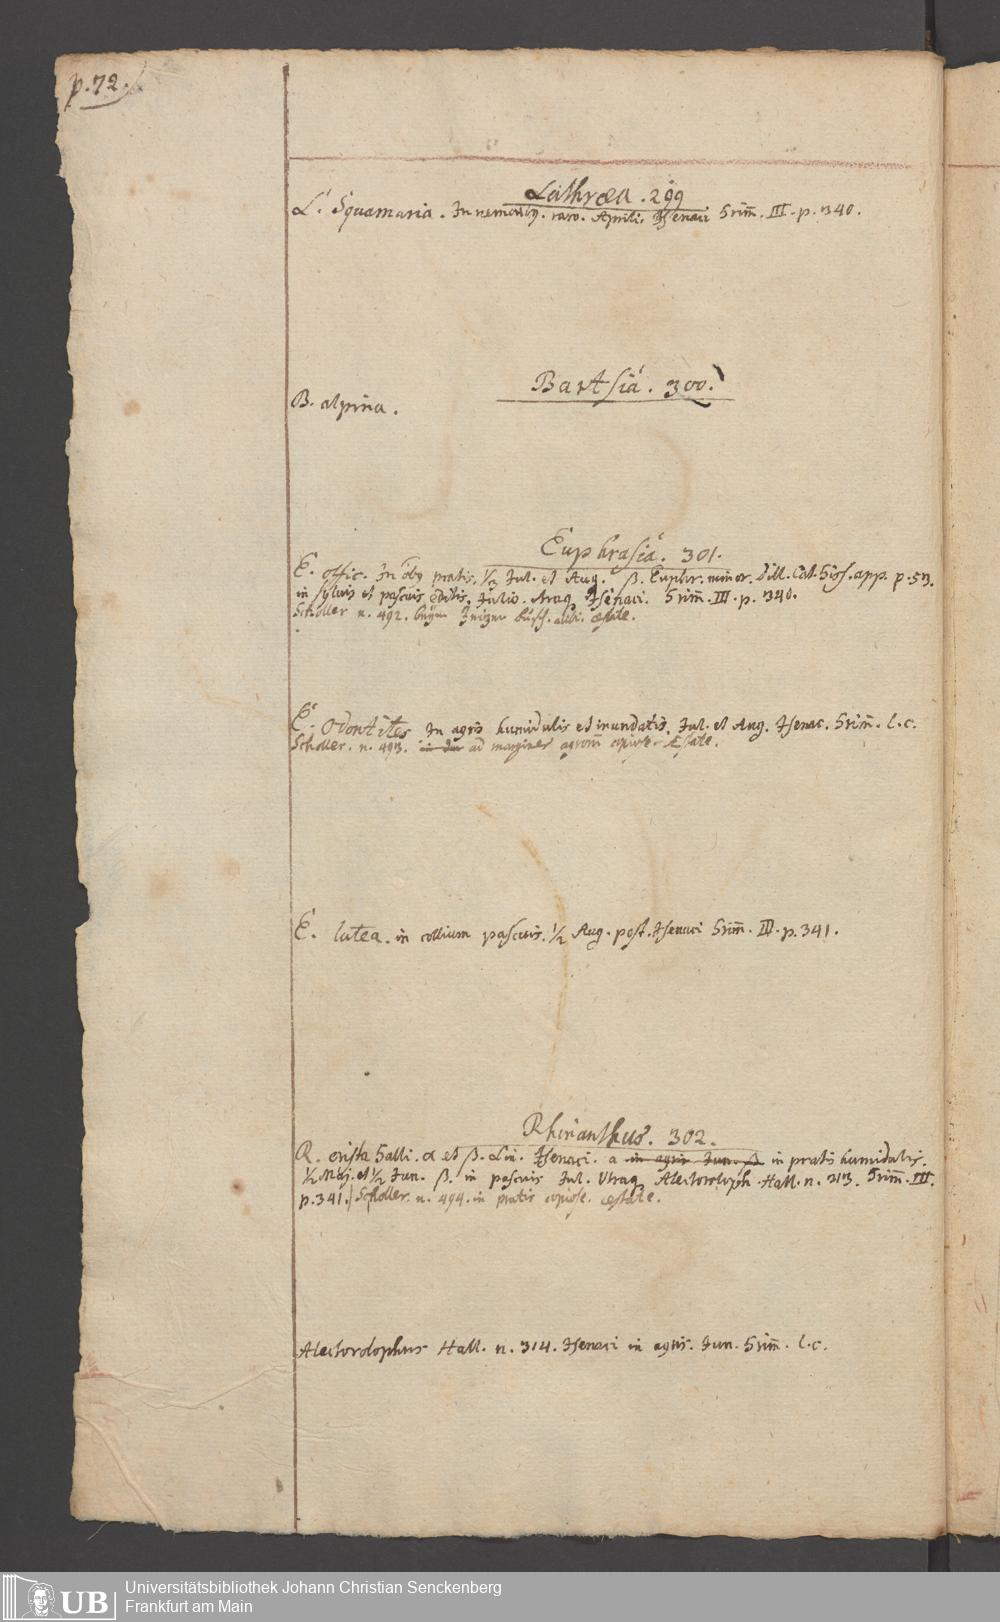 p. 72.
Lathræa . 299
L. Squamaria . In nemoribꝰ. raro. Aprili. Isenaci Grim̄. III. p. 340.
Bartsia . 300.
B. alpina .
Euphrasia . 301.
E. offic. In pratis. 1/2 Jul. et Aug. β. Euphr. minor. Dill. Cat. Giss. app. p. 53.
in sylvis et pascuis Julio. Isenaci. Grim̄. III. p. 340.
Scholler n. 492. æstate.
E. Odontites In agris humidulis et inundatis. Jul. et Aug. Isenac. Grim̄. l. c.
Scholler. n. 493. ad margines agrorum̄ copiose. Æstate.
E. lutea . in collium pascuis. 1/2 Aug. post. Isenaci Grim̄. III. p. 341.
Rhinanthus. 302.
R. crista Galli. α et β. Lin. Isenaci. a in agris Jun. β in pratis humidulis.
1/2 Maj. et 1/2 Jun. β. in pascuis Jul. Utraq Alectoroloph. Hall. n. 313. Grim̄. III.
p. 341. Scholler. n. 494. in pratis copiose. æstate.
Alectorolophus Hall. n. 314. Isenaci in agris. Jun. Grim̄. l. c.
UB
Universitätsbibliothek Johann Christian Senckenberg
Frankfurt am Main